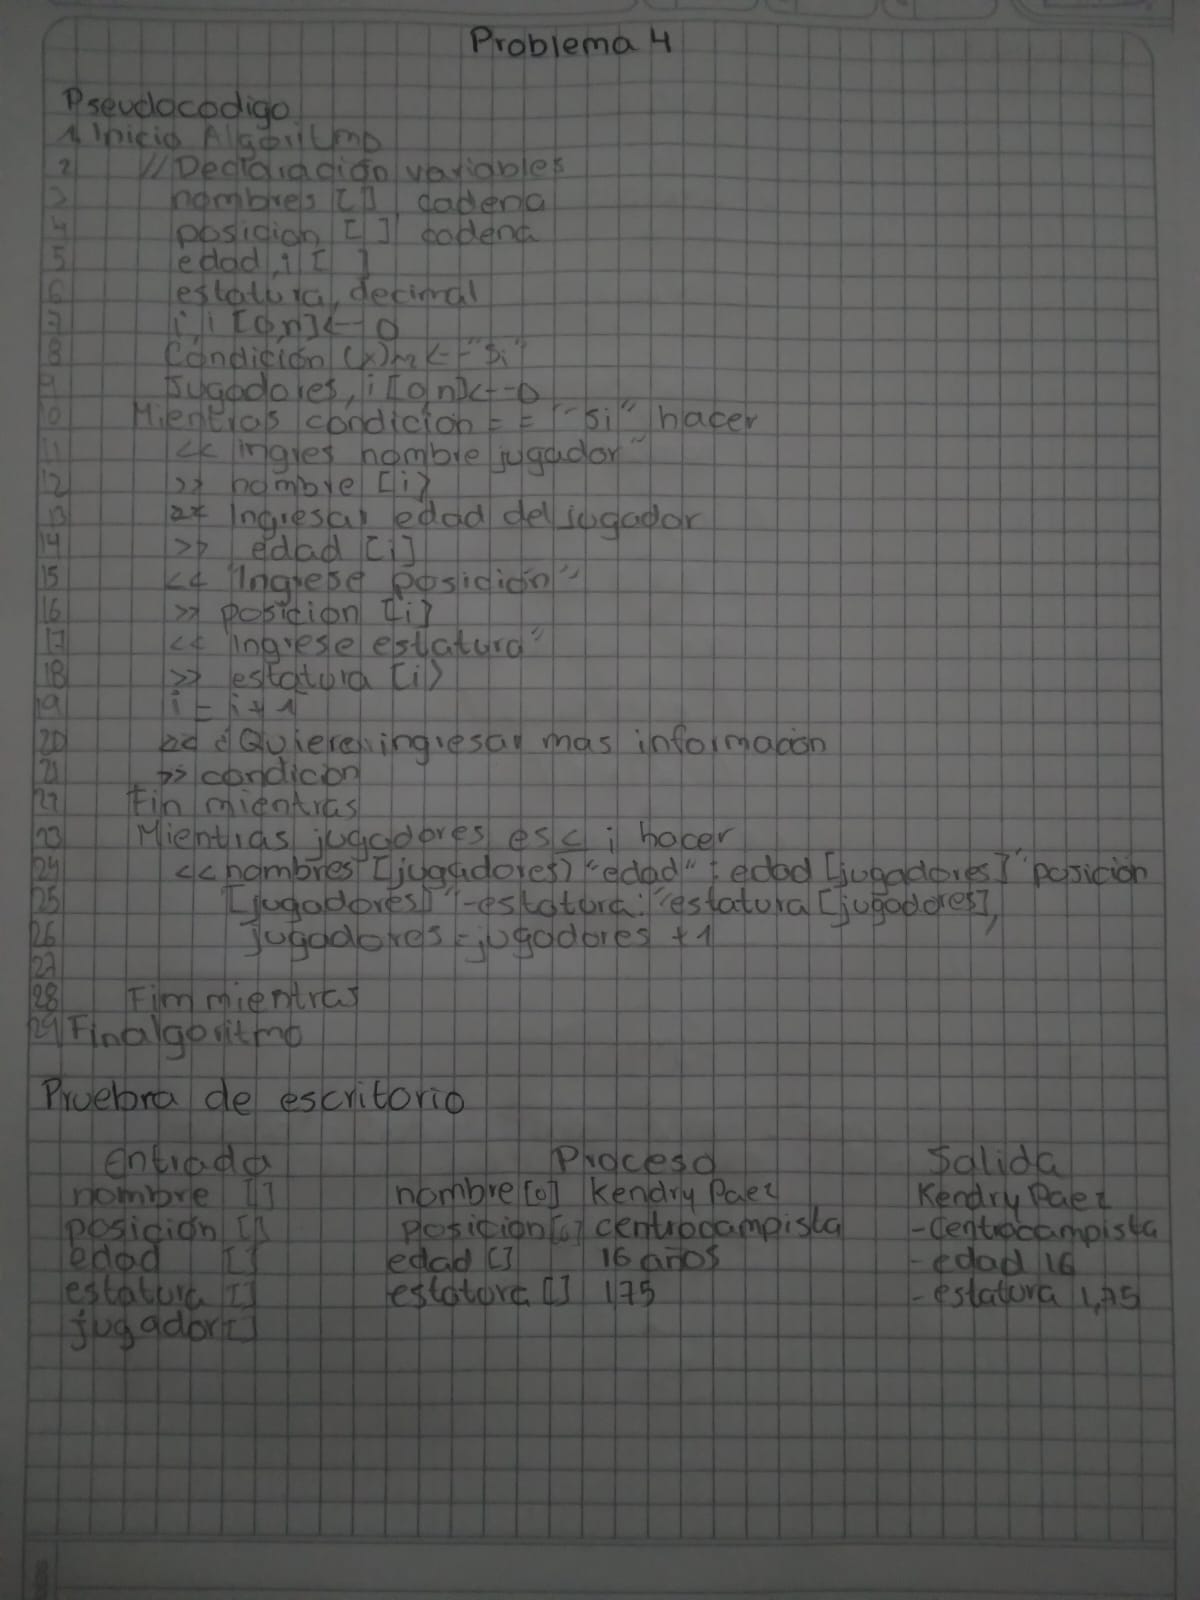 Problema 4
Pseudocodigo
1 Inicio Algoritmo
2 // Declaración variables
3 nombres [], cadena
4 posicion [] cadena
5 edad, i [ ]
6 estatura, decimal
7 i, i [0,n] <-- 0
8 Condición (x)n <-- "si"
9 Jugadores, i [0n] <--0
10 Mientras condicion == "si" hacer
11 << ingres nombre jugador"
12 >> nombre [i]
13 << Ingresar edad del jugador
14 >> edad [i]
15 << "Ingrese posición"
16 >> posicion [i]
17 << "ingrese estatura"
18 >> estatura [i]
19 i = i + 1
20 << ¿Quiere ingresar mas informacion
21 >> condicion
22 Fin mientras
23 Mientras jugadores es < i hacer
24 << nombres [jugadores] "edad" : edad [jugadores] "posición
25 [jugadores] "-estatura: "estatura [jugadores],
26 jugadores = jugadores + 1
27
28 Fim mientras
29 Finalgoritmo
Pruebra de escritorio
Entrada Proceso Salida
nombre [] nombre [0] Kendry Paez Kendry Paez
posición [] posicion [0] centrocampista -Centrocampista
edad [] edad [] 16 años - edad 16
estatura [] estatura [] 175 - estatura 1,75
jugador []